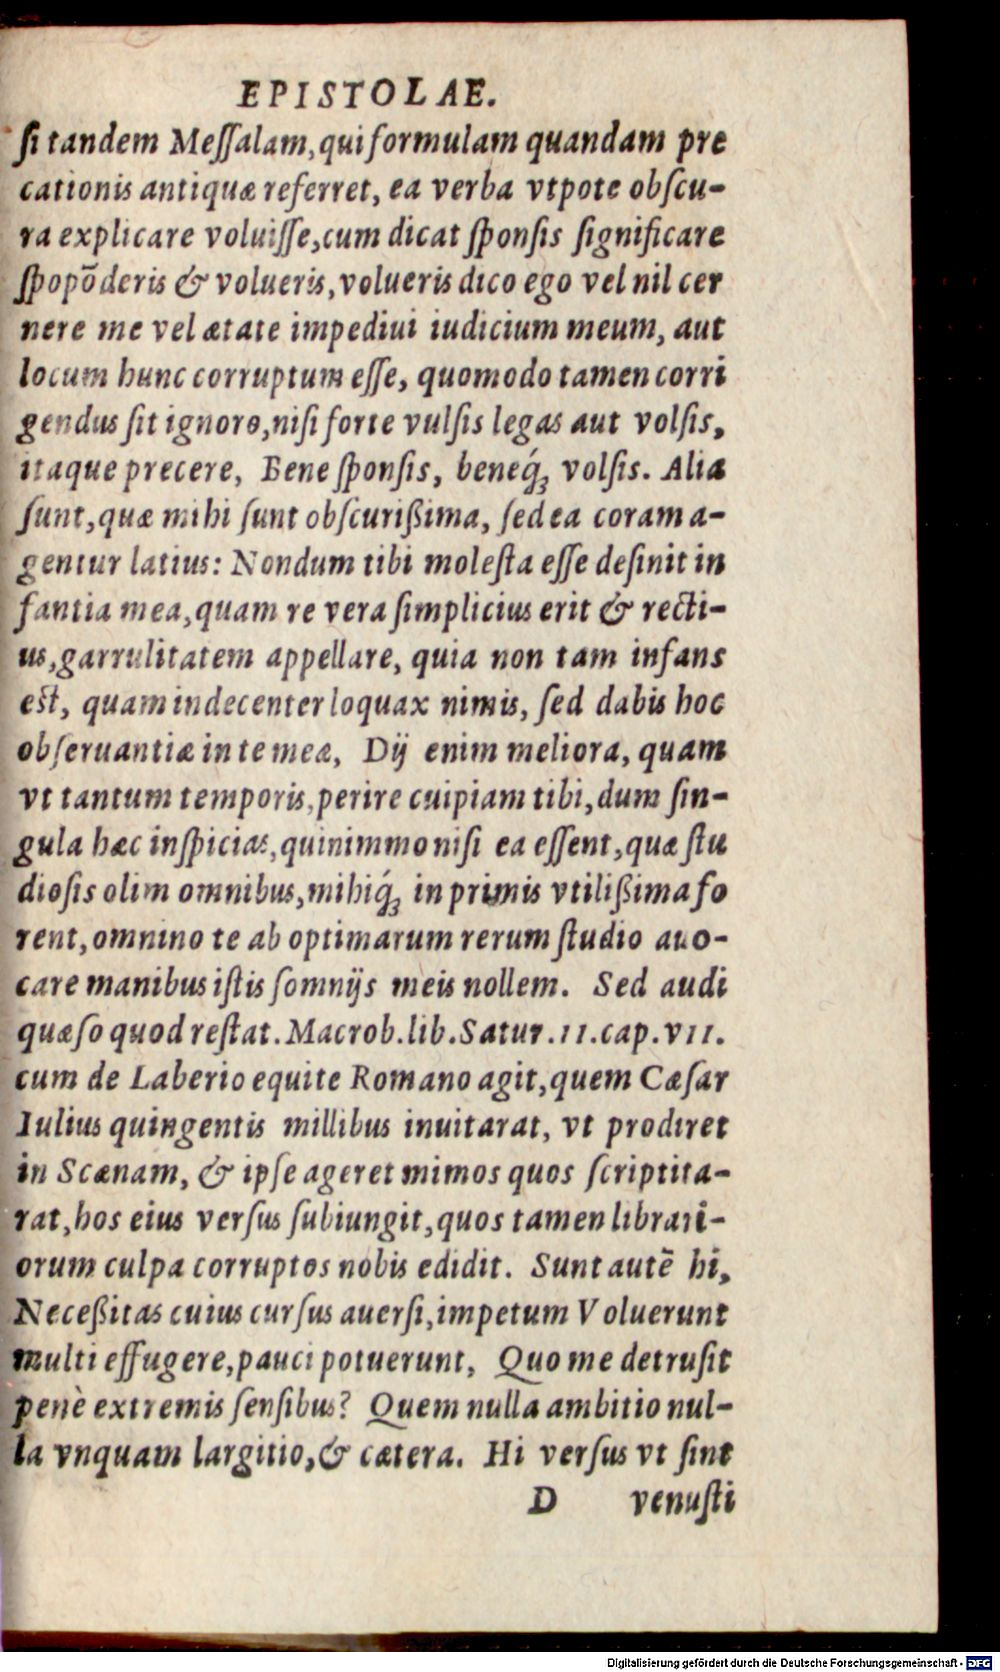 EPISTOLAE.
ſi tandem Meſſalam, qui formulam quandam pre
cationis antiquæ referret, ea verba vtpote obſcu-
ra explicare voluiſſe, cum dicat ſponſis ſignificare
ſpopõderis & volueris, volueris dico ego vel nil cer
nere me vel ætate impediui iudicium meum, aut
locum hunc corruptum eſſe, quomodo tamen corri
gendus ſit ignoro, niſi forte vulſis legas aut volſis,
itaque precere, Bene ſponſis, beneq́ꝫ volſis. Alia
ſunt, quæ mihi ſunt obſcurißima, ſed ea coram a-
gentur latius: Nondum tibi moleſta eſſe deſinit in
fantia mea, quam re vera ſimplicius erit & recti-
us, garrulitatem appellare, quia non tam infans
est, quam indecenter loquax nimis, ſed dabis hoc
obſeruantiæ in te meæ, Dij enim meliora, quam
vt tantum temporis, perire cuipiam tibi, dum ſin-
gula hæc inſpicias, quinimmo niſi ea eſſent, quæ ſtu
dioſis olim omnibus, mihiq́ꝫ in primis vtilißima fo
rent, omnino te ab optimarum rerum ſtudio auo-
care manibus iſtis ſomnijs meis nollem. Sed audi
quæſo quod reſtat. Macrob. lib. Satur. 11. cap. v11.
cum de Laberio equite Romano agit, quem Cæſar
Iulius quingentis millibus inuitarat, vt prodiret
in Scænam, & ipſe ageret mimos quos ſcriptita-
rat, hos eius verſus ſubiungit, quos tamen librari-
orum culpa corruptos nobis edidit. Sunt autẽ hi,
Neceßitas cuius curſus auerſi, impetum Voluerunt
multi effugere, pauci potuerunt, Quo me detruſit
penè extremis ſenſibus? Quem nulla ambitio nul-
la vnquam largitio, & cætera. Hi verſus vt ſint
D venuſti
Digitalisierung gefördert durch die Deutsche Forschungsgemeinschaft - DFG